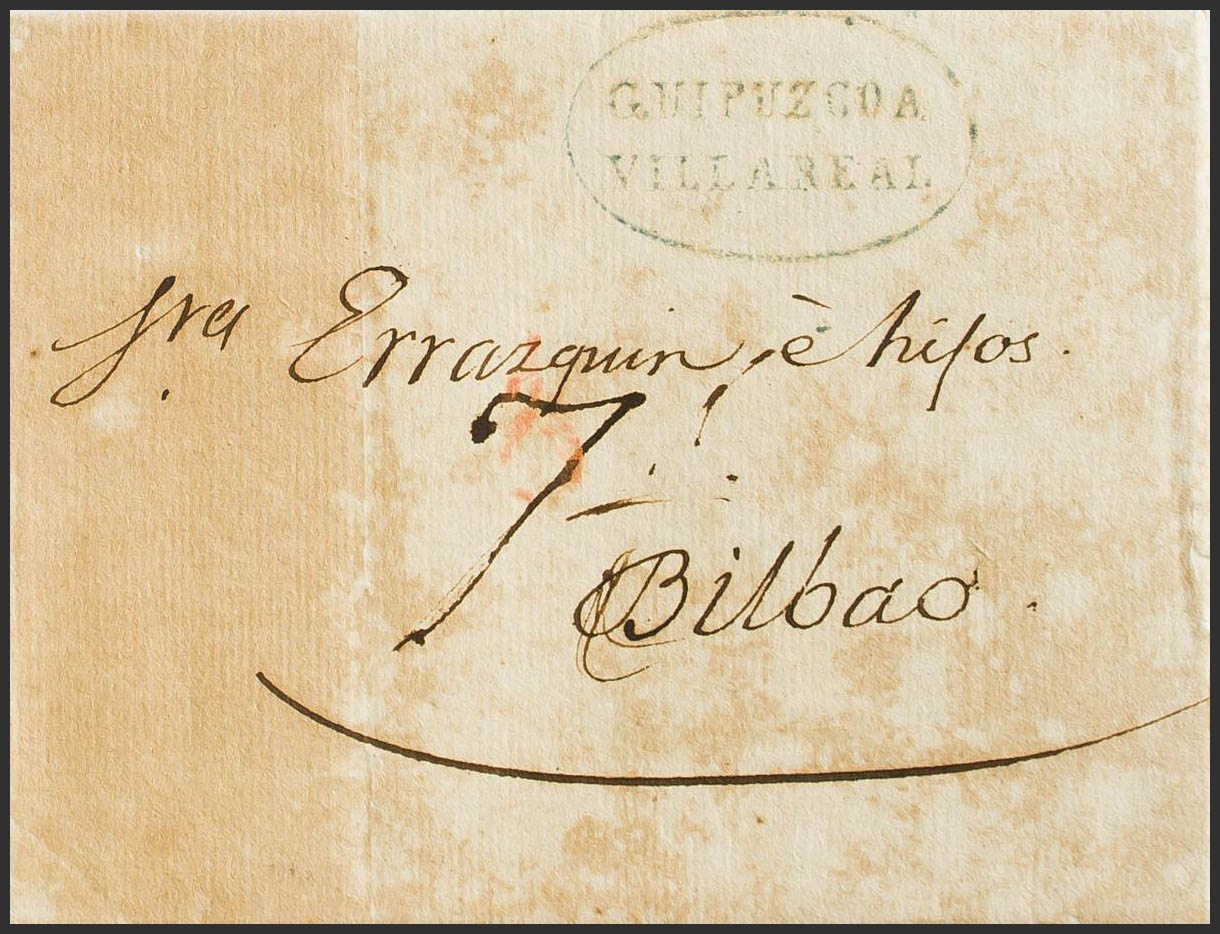 GUIPUZCOA
VILLAREAL
Sra Errazquin è hijos.
7
Bilbao.